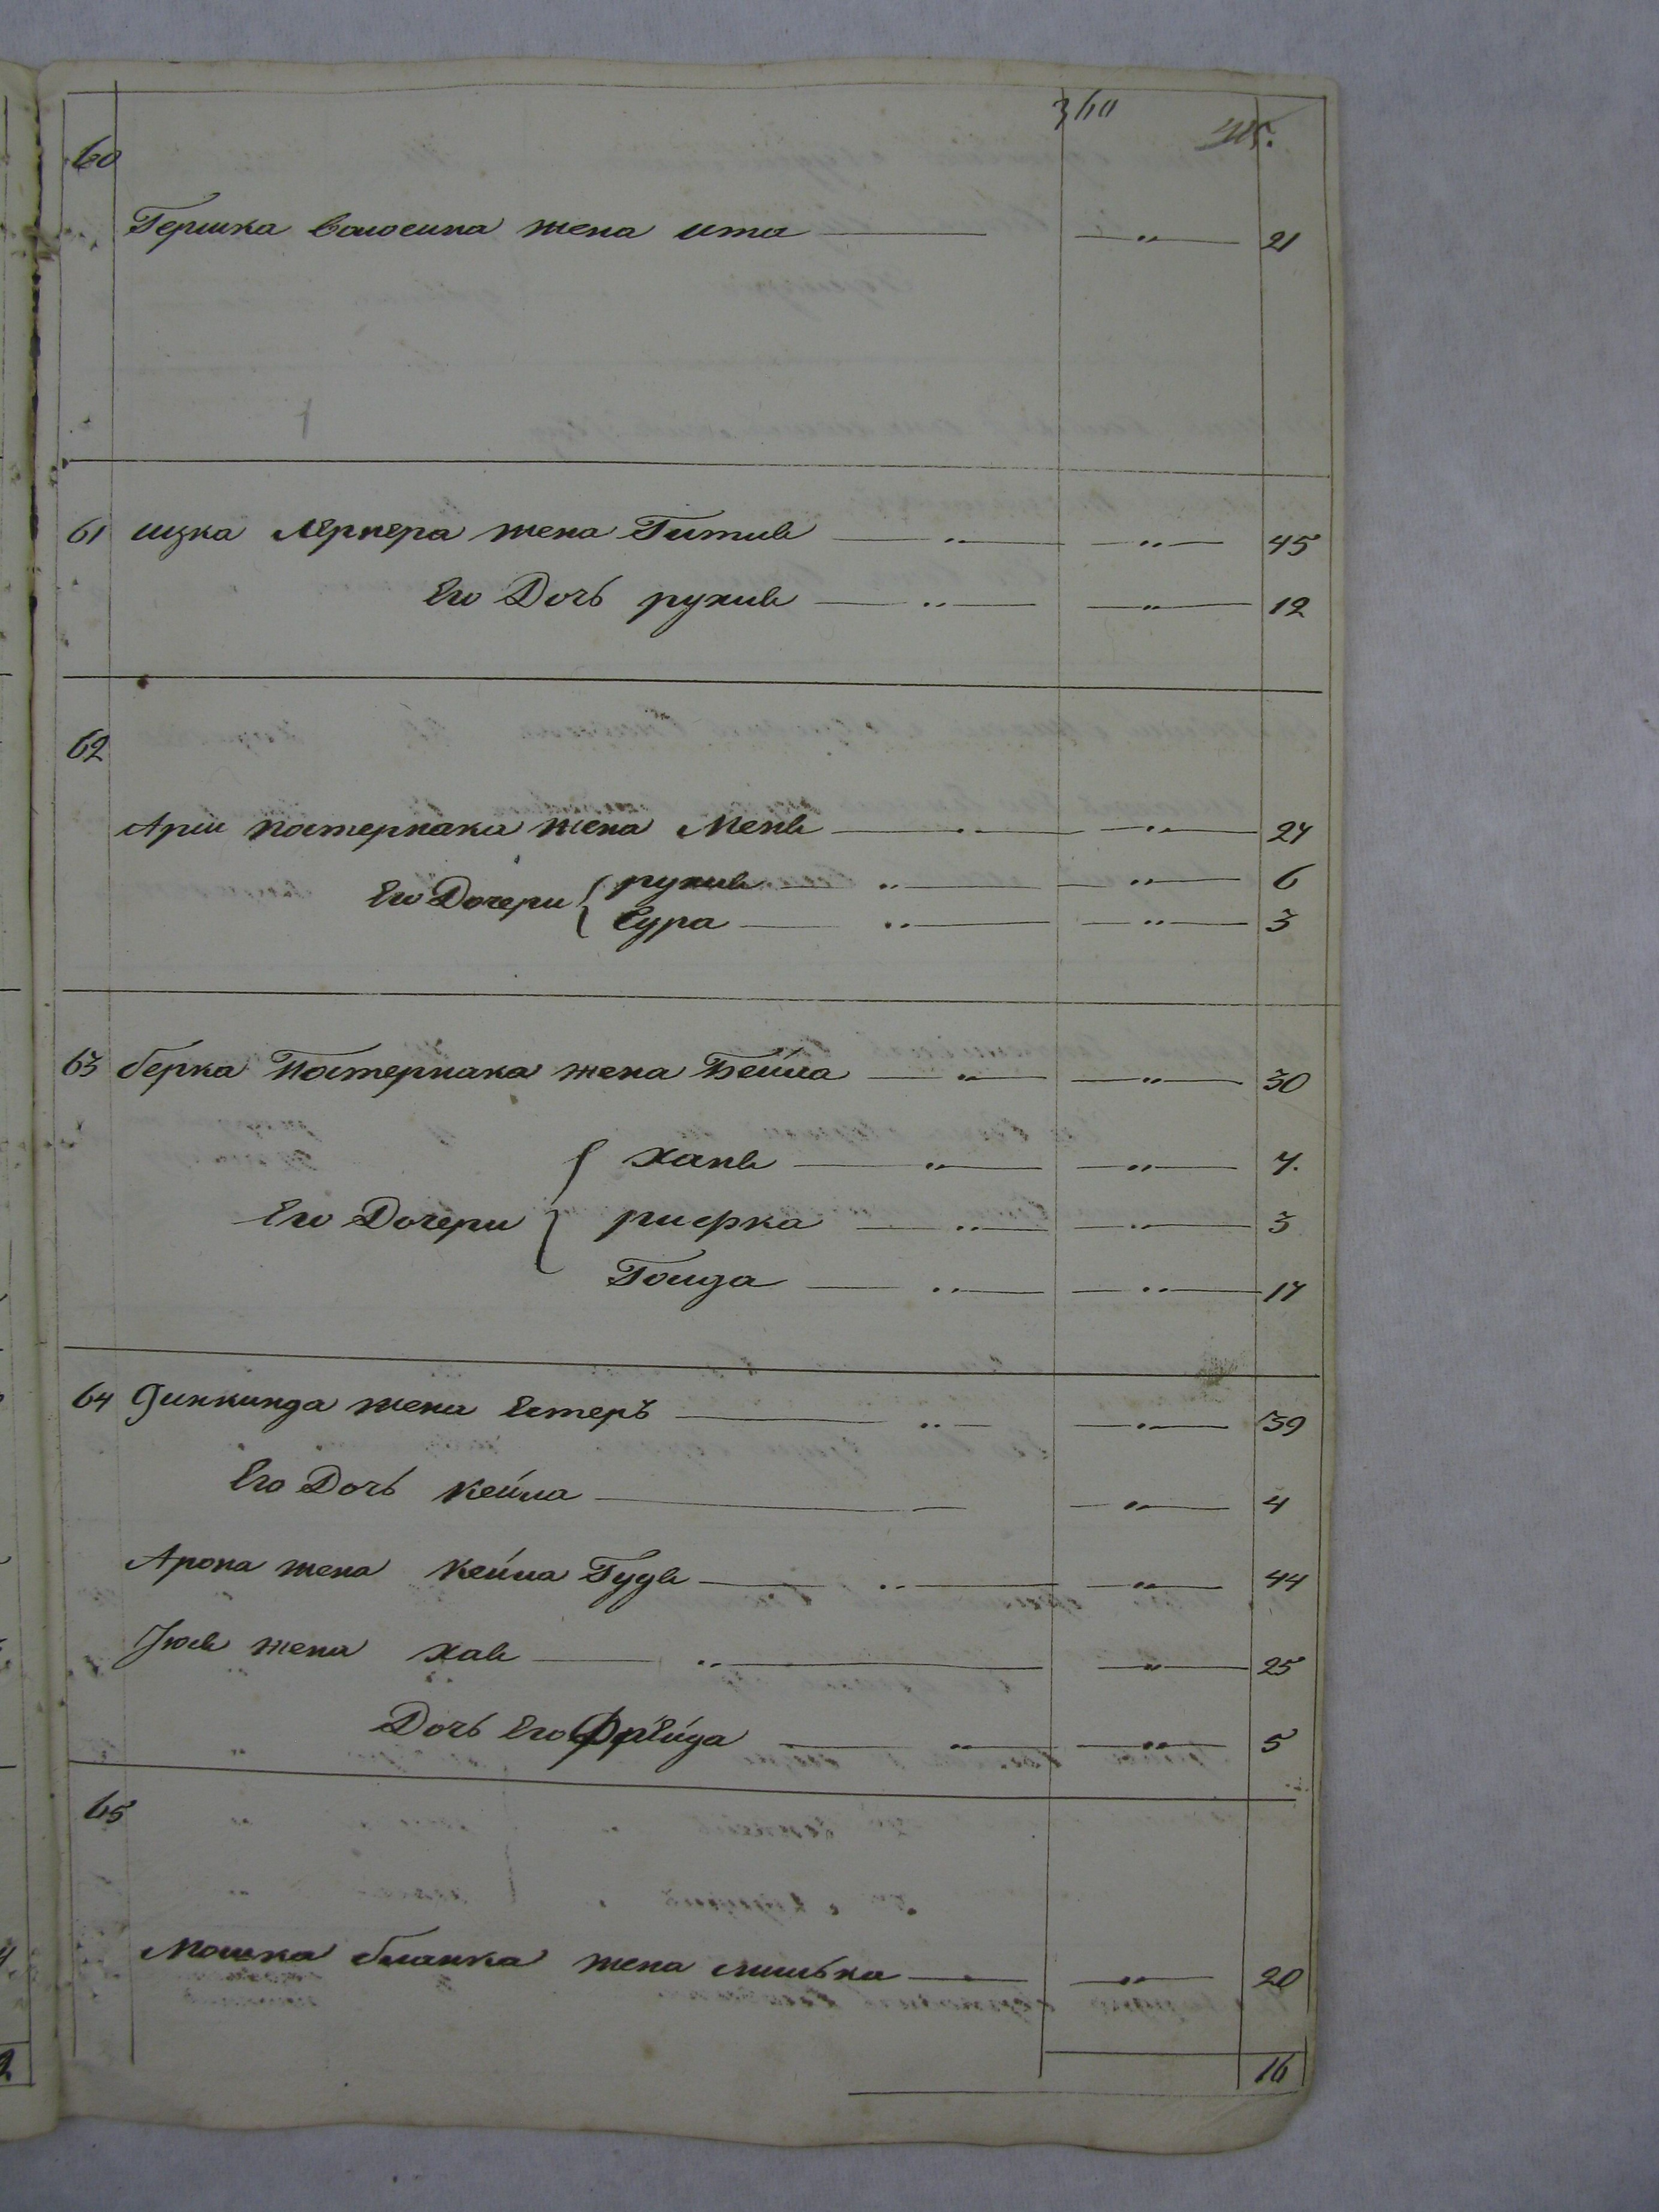 360
60
Гершка Волосина жена ита — „ — 21
61 ицка Лернера жена Гитля — „ — „ — 45
Его Дочь рухля — „ — „ — 12
62
Арии пастернака жена Меня — „ — „ — 27
Его Дочери { рухля — „ — „ — 6
Сура — „ — „ — 3
63 берка Пастернака жена Бейла — „ — „ — 30
{ Ханя — „ — „ — 7.
Его Дочери рифка — „ — „ — 3
Голда — „ — „ — 17
64 Зинкинда жена Естеръ — „ — „ — 39
Его Дочь Кейла — „ — 4
Арона жена Кейла Гудя — „ — „ — 44
жена Хая — „ — „ — 25
Дочь Его Фрейда — „ — „ — 5
65
Мошка бланка жена милька — „ — 20
16